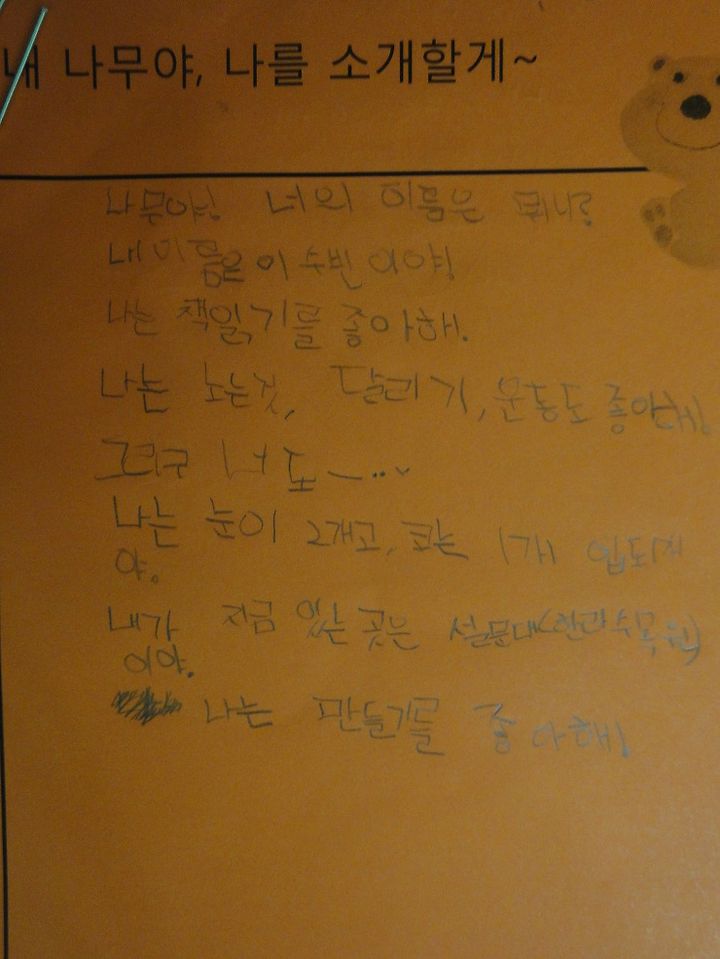 내 나무야, 나를 소개할게~
나무야! 너의 이름은 뭐니?
내 이름은 이수빈이야!
나는 책읽기를 좋아해.
나는 노는것, 달리기, 운동도 좋아해!
그리구 너도~
나는 눈이 2개고, 코는 1개 입도1개
야.
내가 지금 있는 곳은 설문대(한라수목원)
이야.
나는 만들기를 좋아해!